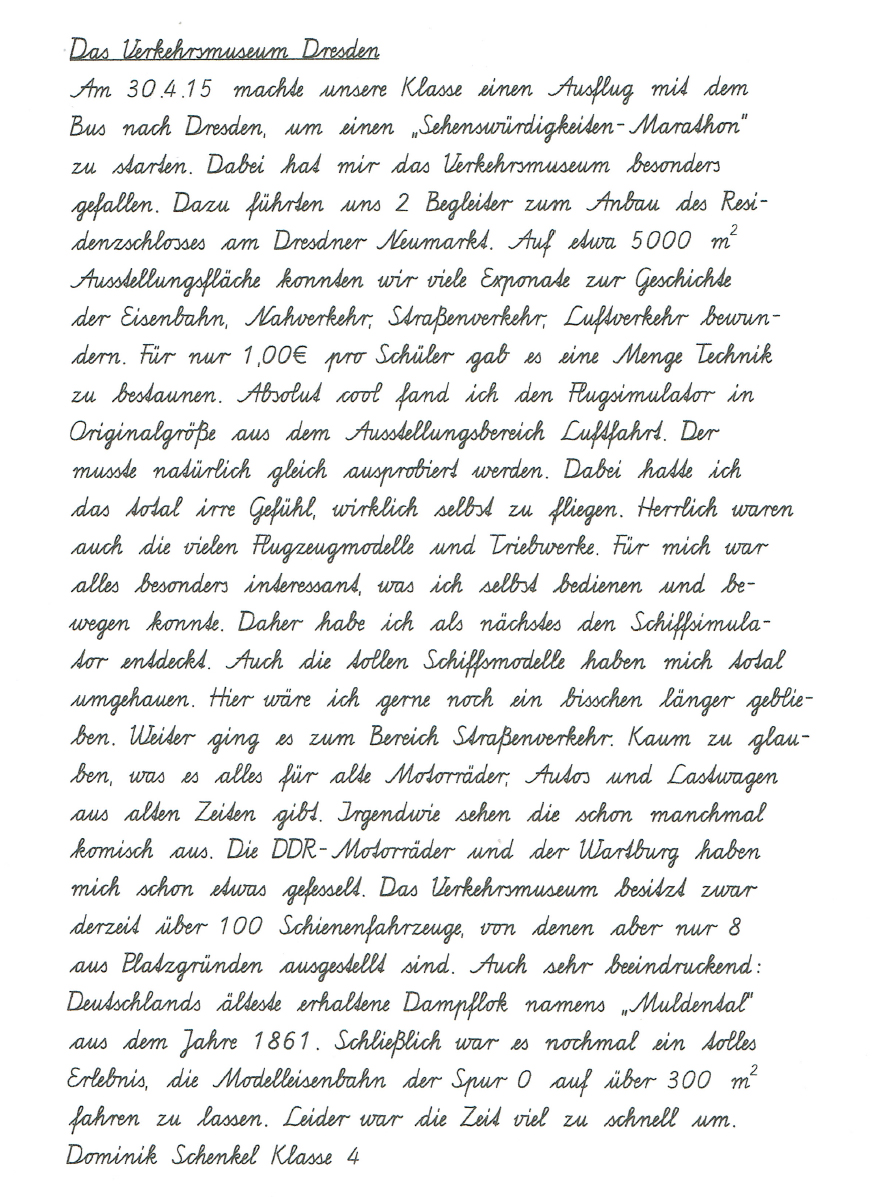 Das Verkehrsmuseum Dresden
Am 30.4.15 machte unsere Klasse einen Ausflug mit dem
Bus nach Dresden, um einen „Sehenswürdigkeiten-Marathon"
zu starten. Dabei hat mir das Verkehrsmuseum besonders
gefallen. Dazu führten uns 2 Begleiter zum Anbau des Resi-
denzschlosses am Dresdner Neumarkt. Auf etwa 5000 m²
Ausstellungsfläche konnten wir viele Exponate zur Geschichte
der Eisenbahn, Nahverkehr, Straßenverkehr, Luftverkehr bewun-
dern. Für nur 1,00€ pro Schüler gab es eine Menge Technik
zu bestaunen. Absolut cool fand ich den Flugsimulator in
Originalgröße aus dem Ausstellungsbereich Luftfahrt. Der
musste natürlich gleich ausprobiert werden. Dabei hatte ich
das total irre Gefühl, wirklich selbst zu fliegen. Herrlich waren
auch die vielen Flugzeugmodelle und Triebwerke. Für mich war
alles besonders interessant, was ich selbst bedienen und be-
wegen konnte. Daher habe ich als nächstes den Schiffsimula-
tor entdeckt. Auch die tollen Schiffsmodelle haben mich total
umgehauen. Hier wäre ich gerne noch ein bisschen länger geblie-
ben. Weiter ging es zum Bereich Straßenverkehr. Kaum zu glau-
ben, was es alles für alte Motorräder, Autos und Lastwagen
aus alten Zeiten gibt. Irgendwie sehen die schon manchmal
komisch aus. Die DDR-Motorräder und der Wartburg haben
mich schon etwas gefesselt. Das Verkehrsmuseum besitzt zwar
derzeit über 100 Schienenfahrzeuge, von denen aber nur 8
aus Platzgründen ausgestellt sind. Auch sehr beeindruckend:
Deutschlands älteste erhaltene Dampflok namens „Muldental"
aus dem Jahre 1861. Schließlich war es nochmal ein tolles
Erlebnis, die Modelleisenbahn der Spur 0 auf über 300 m²
fahren zu lassen. Leider war die Zeit viel zu schnell um.
Dominik Schenkel Klasse 4